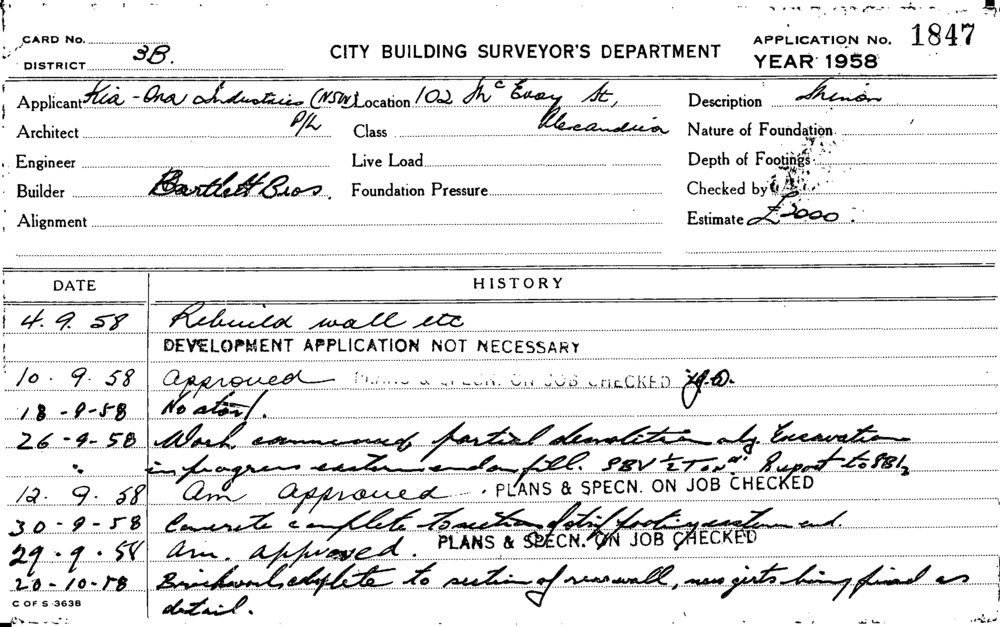 CARD No.
DISTRICT 3B.
CITY BUILDING SURVEYOR'S DEPARTMENT
APPLICATION No. 1847
YEAR 1958
Applicant Kia-Ora Industries (NSW) P/L
Location 102 Mc Evoy St, Alexandria
Description
Architect
Class
Nature of Foundation
Engineer
Live Load
Depth of Footings
Builder Bartlett Bros.
Foundation Pressure
Checked by
Alignment
Estimate £2000.
DATE HISTORY
4.9.58 Rebuild wall etc
DEVELOPMENT APPLICATION NOT NECESSARY
10.9.58 Approved PLANS & SPECN. ON JOB CHECKED
18-9-58 No start.
26-9-58 Work commenced partial demolition only. Excavation
" in progress eastern end on fill. Report to
12.9.58 Am approved. PLANS & SPECN. ON JOB CHECKED
30-9-58 Concrete complete to section of strip footing eastern end.
29.9.58 Am. approved. PLANS & SPECN. ON JOB CHECKED
20-10-58 Brickwork complete to section of rear wall, new girts being fixed as
detail.
C OF S 3638